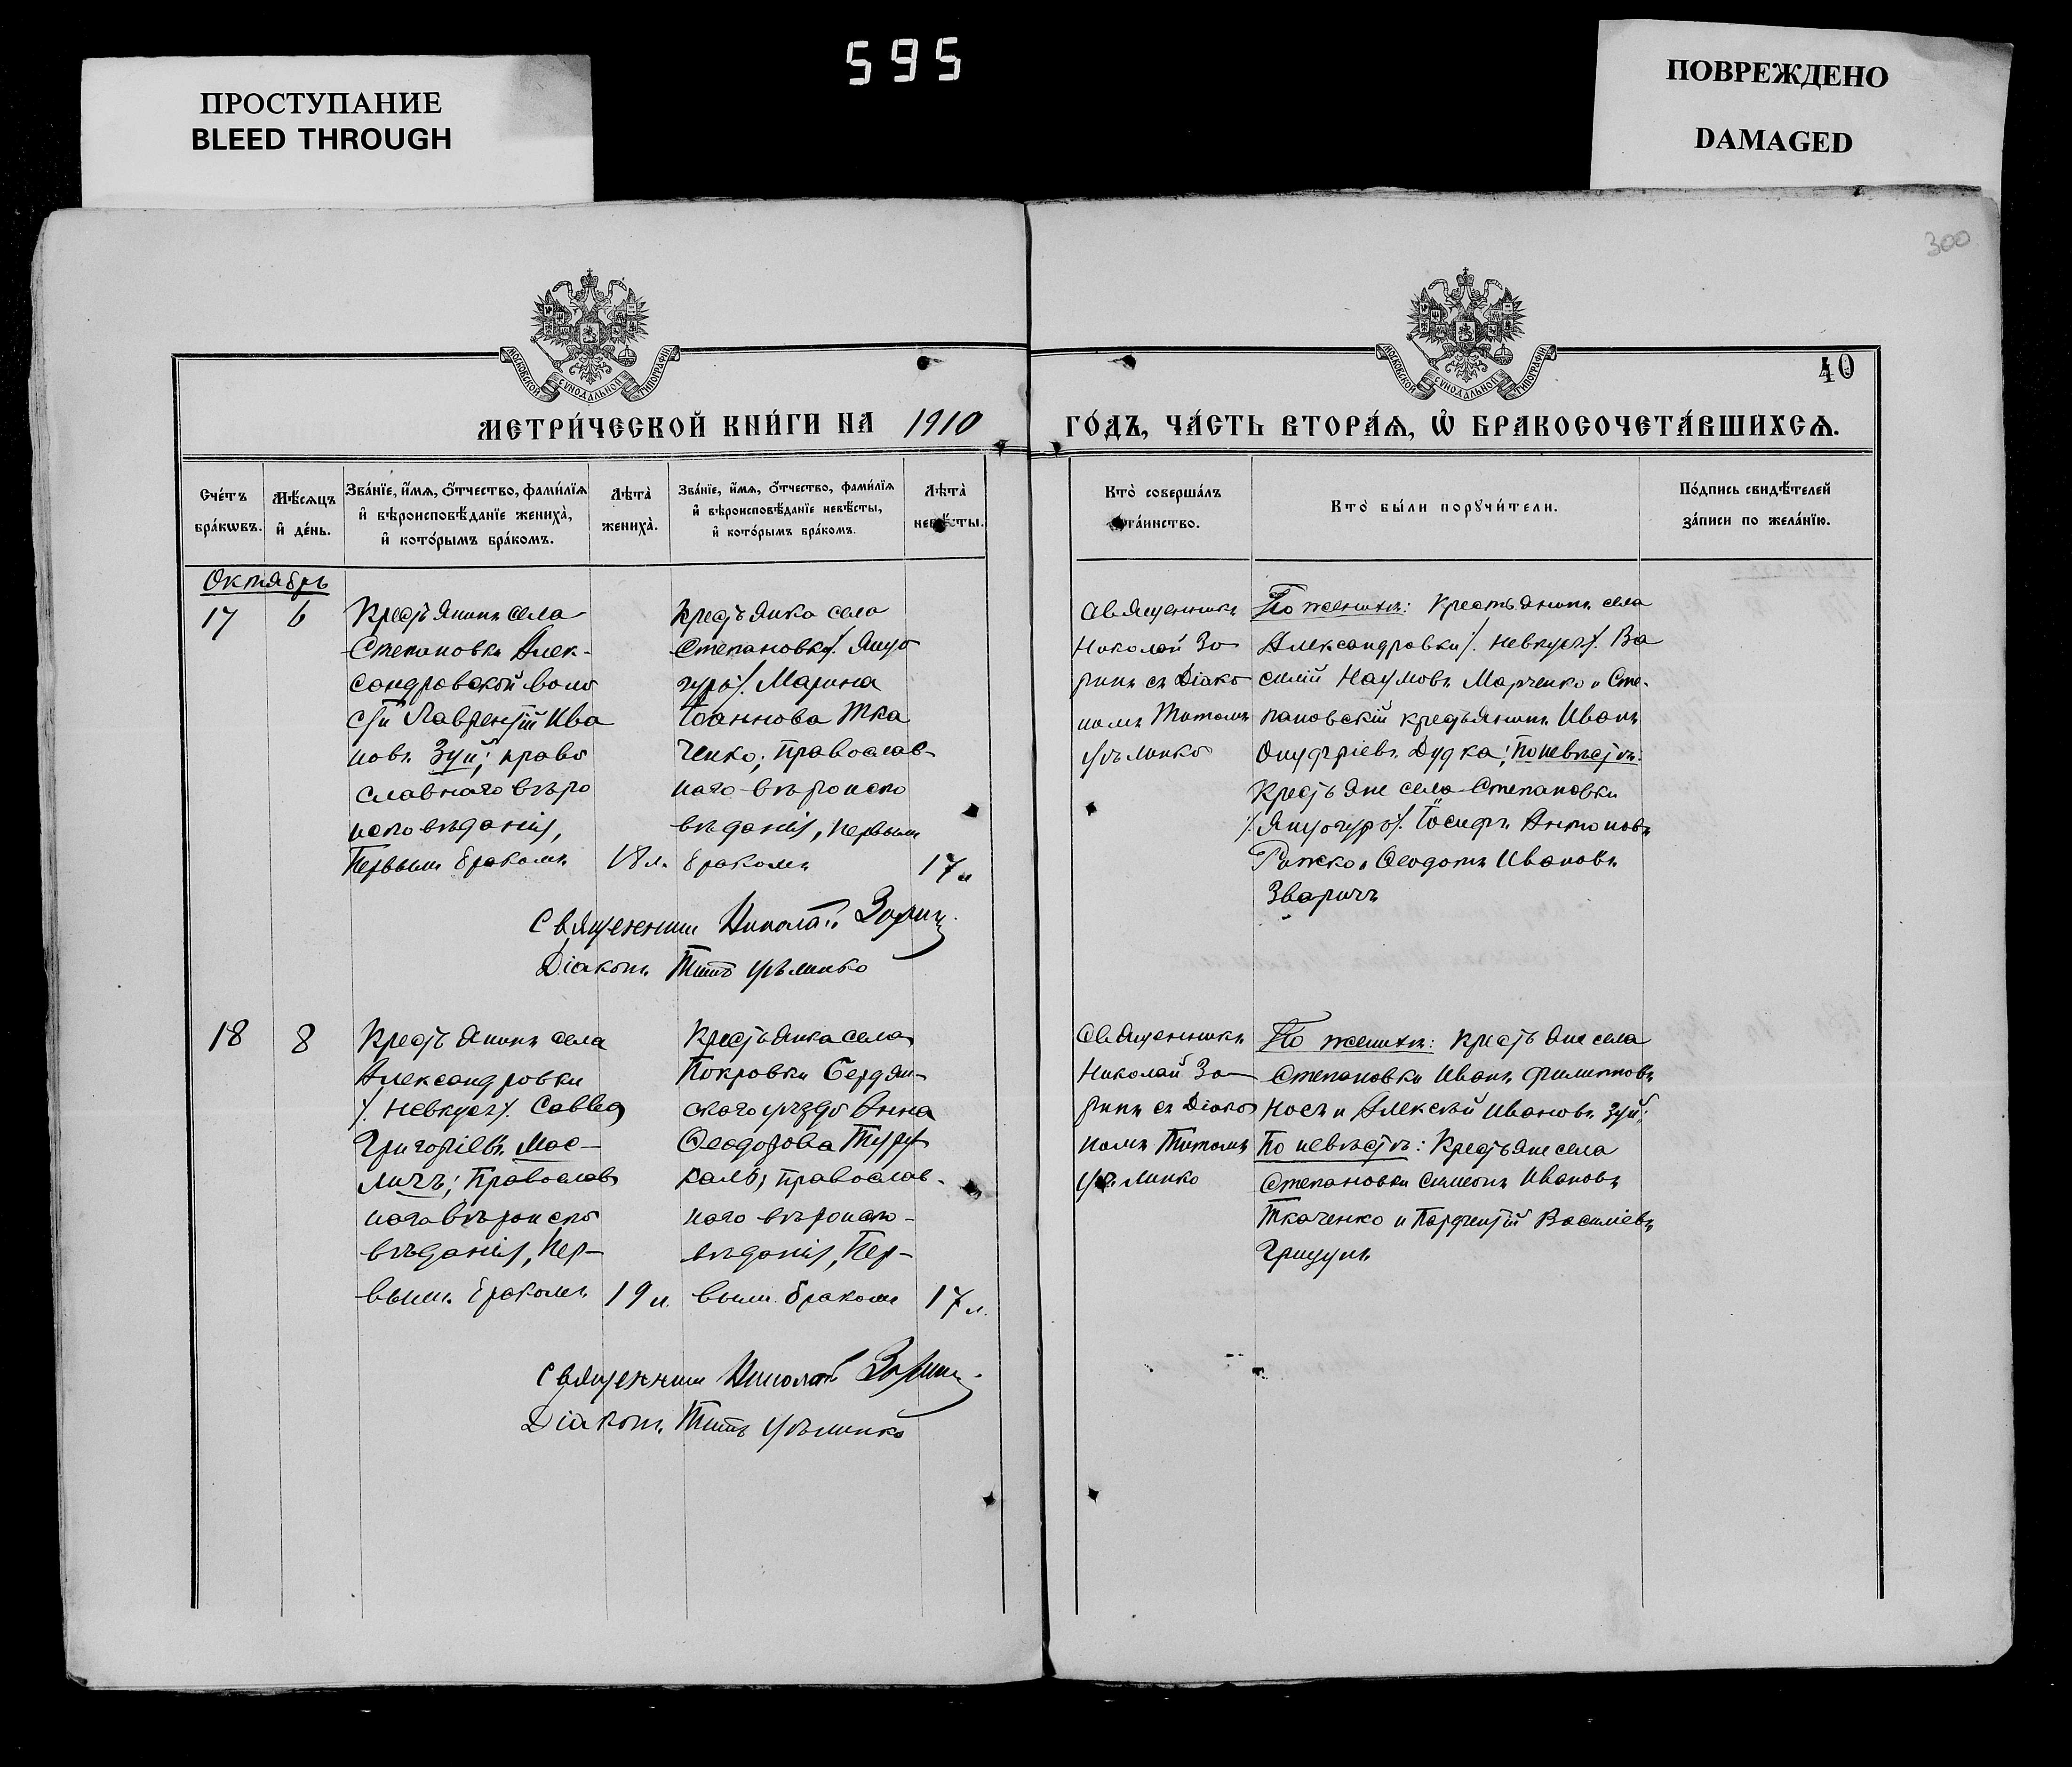 595
ПРОСТУПАНИЕ
BLEED THROUGH
ПОВРЕЖДЕНО
DAMAGED
300
МОСКОВСКОЙ СУНОДАЛЬНОЙ ТИПОГРАФІИ
МОСКОВСКОЙ СУНОДАЛЬНОЙ ТИПОГРАФІИ
40
МЕТРИ́ЧЕСКОЙ КНИ́ГИ НА 1910
ГО́ДЪ, ЧА́СТЬ ВТОРА́Ѧ, Ѡ БРАКОСОЧЕТА́ВШИХСѦ.
Сче́тъ
бра́кѡвъ.
Мѣ́сѧцъ
и҆ де́нь.
Зва́нїе, и҆́мѧ, ѻ҆́тчество, фами́лїѧ
и҆ вѣроисповѣ́данїе жениха̀,
и҆ кото́рымъ бра́комъ.
Лѣта̀
жениха̀.
Зва́нїе, и҆́мѧ, ѻ҆́тчество, фами́лїѧ
и҆ вѣроисповѣ́данїе невѣ́сты,
и҆ кото́рымъ бра́комъ.
Лѣта̀
невѣ́сты.
Кто̀ соверша́лъ
та́инство.
Кто̀ бы́ли порꙋчи́тели.
По́дпись свидѣ́телей
за́писи по жела́нїю.
Октябрь
17
6
Крестьянинъ села
Степановки Алек-
сандровской воло
сти Лаврентій Ива
новъ Зуй; право
славнаго вѣро
исповѣданія,
Первымъ бракомъ
18 л.
Крестьянка села
Степановки
Марина
Іоаннова Тка
ченко; Православ-
наго вѣроиспо
вѣданія, первымъ
бракомъ
17 л
Священникъ
Николай Зо
ринъ съ Діако
номъ Титомъ
По женихѣ: Крестьянинъ села
Александровки /. Невкусъ /. Ва
силій Наумовъ Марченко и Сте-
пановскій крестьянинъ Иванъ
Онуфріевъ Дудка; По невѣстѣ:
Крестьяне села Степановки
Іосифъ Антоновъ
Рожко и Ѳеодотъ Ивановъ
Зваричъ
Священникъ Николай Зоринъ
Діаконъ Титъ
18
8
Крестьянинъ села
Александровки
/. Невкусъ /. Савва
Григоріевъ Мас-
личъ; Православ
наго вѣроиспо
вѣданія, Пер-
вымъ бракомъ
19 л.
Крестьянка села
Покровки Бердян-
скаго уѣзда Анна
Ѳеодорова
православ-
наго вѣроиспо-
вѣданія, Пер-
вымъ бракомъ
17 л.
Священникъ
Николай Зо
ринъ съ Діако
номъ Титомъ
По женихѣ: Крестьяне села
Степановки Иванъ Филипповъ
Носъ и Алексѣй Ивановъ Зуй;
По невѣстѣ: Крестьяне села
Степановки Симеонъ Ивановъ
Ткаченко и Парфентій Василіевъ
Грицунъ
Священникъ Николай Зоринъ
Діаконъ Титъ